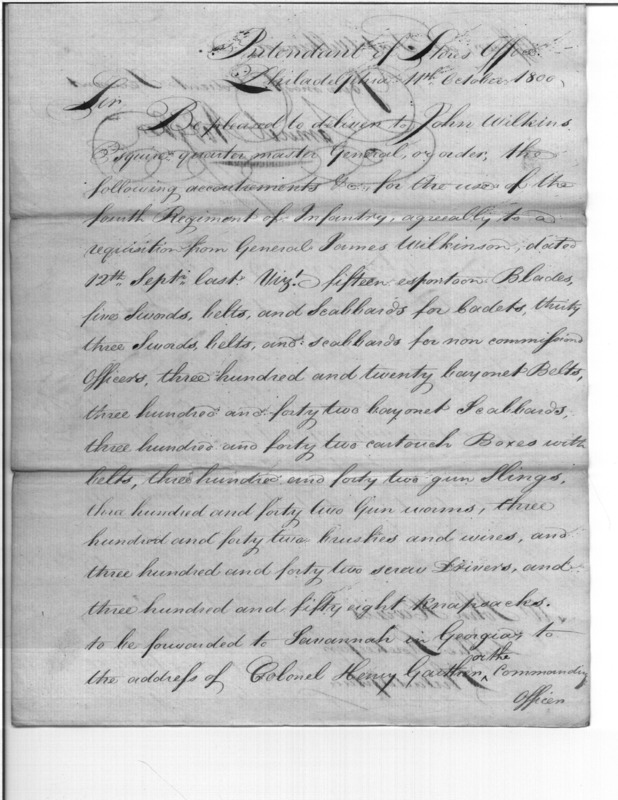 Intendant of Stores Office
Philadelphia 11th. October, 1800,
Sir
Be pleased to deliver to John Wilkins
Esquire quarter master General, or order, the
following accoutrements &c, for the use of the
fourth Regiment of Infantry, agreeably to a
requisition from General James Wilkinson, dated
12th. Septr. last. Vizt. fifteen espontoon Blades,
five Swords, belts, and Scabbards for Cadets, thirty
three Swords, belts, and scabbards for non commissiond
Officers, three hundred and twenty bayonet Belts,
three hundred and forty two bayonet Scabbards,
three hundred and forty two cartouch Boxes with
belts, three hundred and forty two gun Slings,
three hundred and forty two Gun worms, three
hundred and forty two brushes and wires, and
three hundred and forty two screw Drivers, and
three hundred and fifty eight Knapsacks.
to be forwarded to Savannah in Georgia to
the address of Colonel Henry Gaither, or the Commanding
Officer